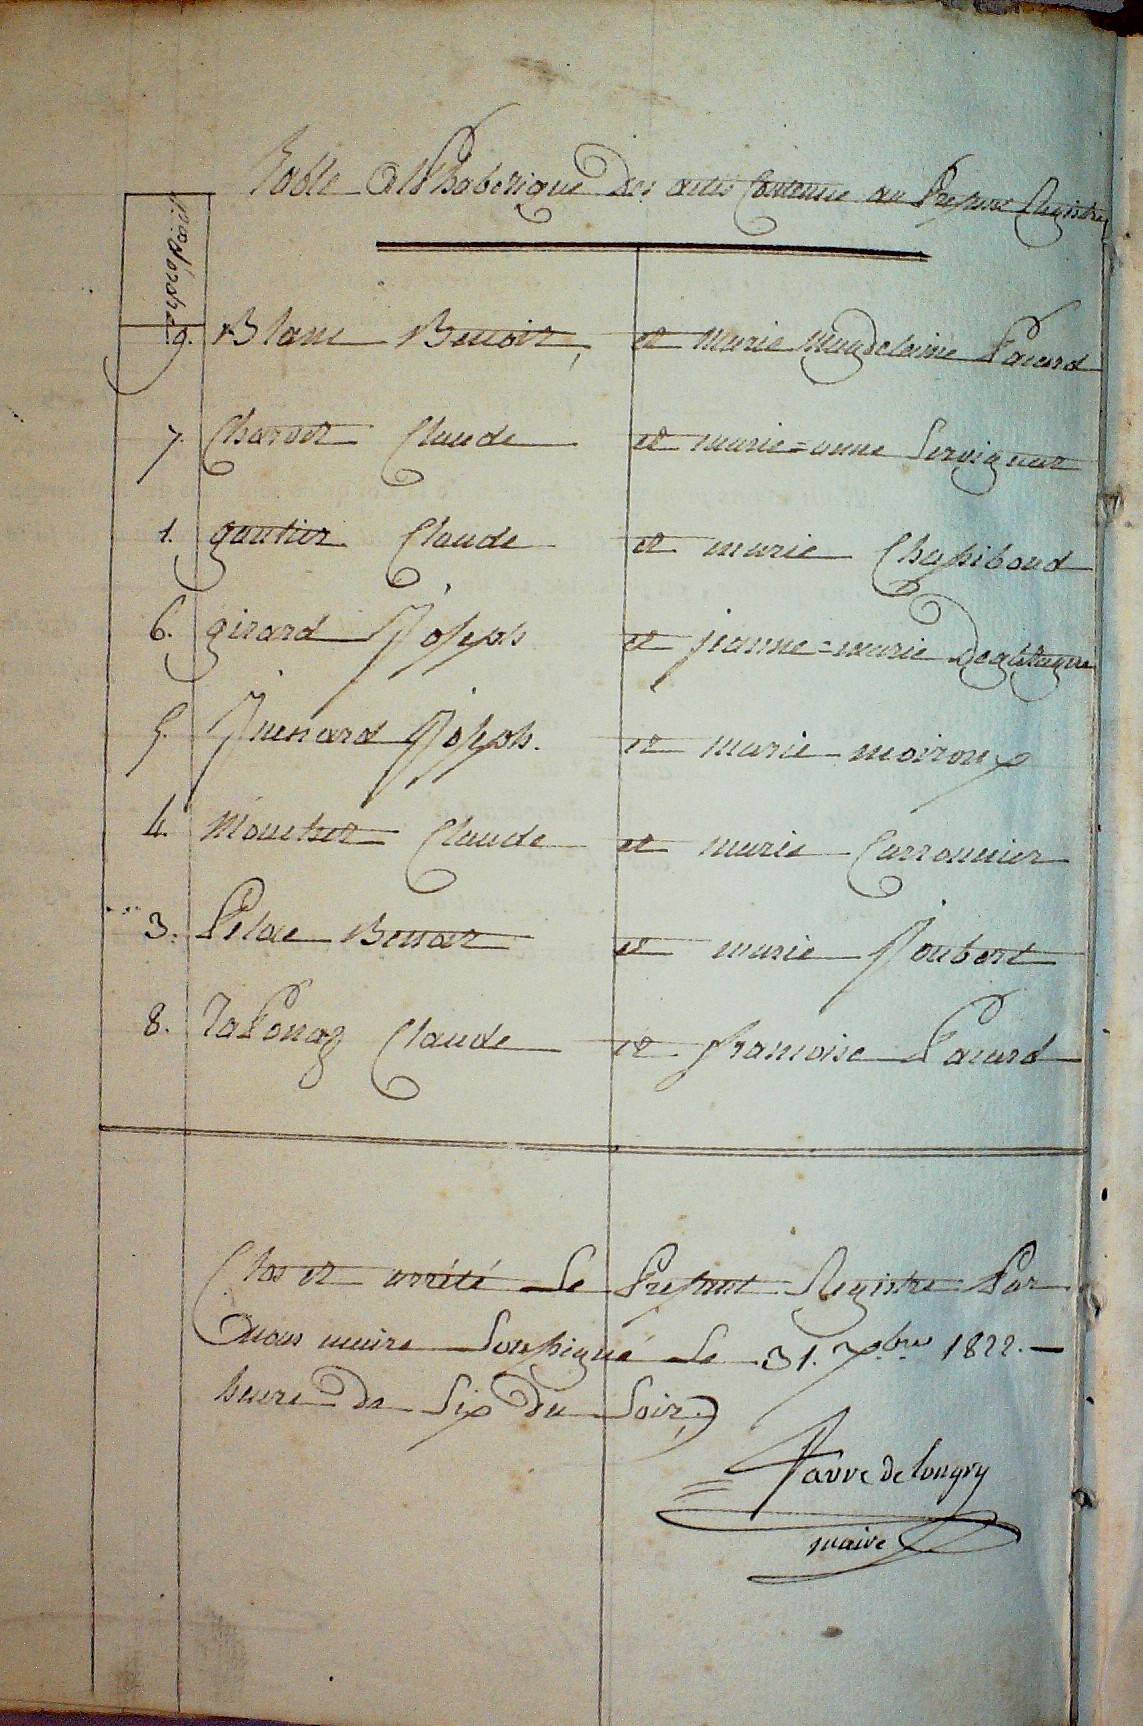 Table Alphabetique des actes Contenue au Present Registre
Nos d'ordre
9. Blanc Benoit, et marie magdelaine Pacard
7. Charvet Claude et marie=anne Servignat
1. gautier Claude et marie Chassiboud
6. girard Joseph et jeanne=marie
5. Juenard Joseph. et marie moiroux
4. Mouchet Claude et marie Carronnier
3. Pilae Benoit et marie Joubert
8. Taponaz Claude et francoise Pacard
Clos et arrété Le Present Registre Par
Nous maire Soussigné Le 31. Xbre 1822. —
heure de Six du Soir,
favre de longry
maire